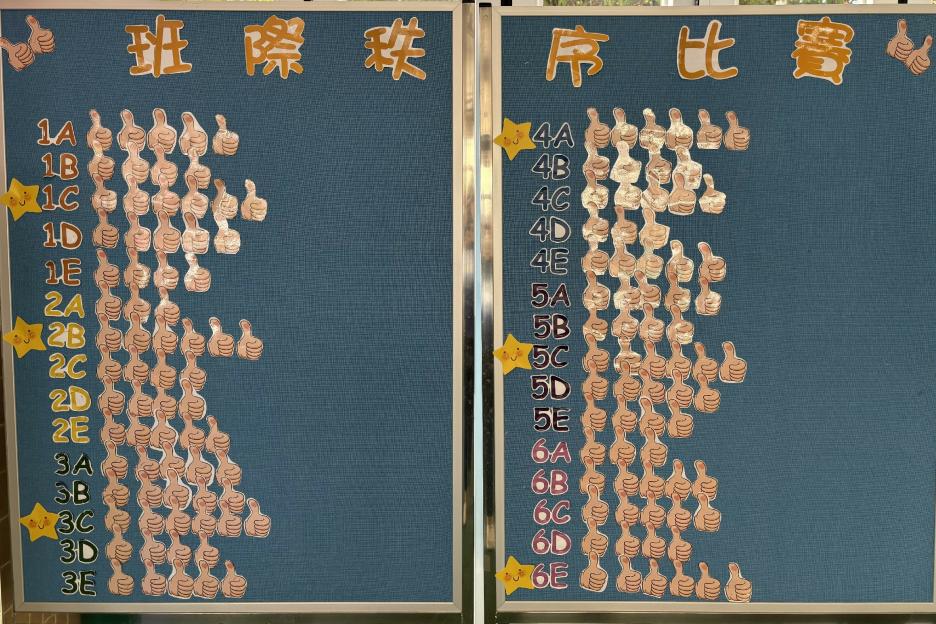 班際秩序比賽
1A
1B
1C
1D
1E
2A
2B
2C
2D
2E
3A
3B
3C
3D
3E
4A
4B
4C
4D
4E
5A
5B
5C
5D
5E
6A
6B
6C
6D
6E